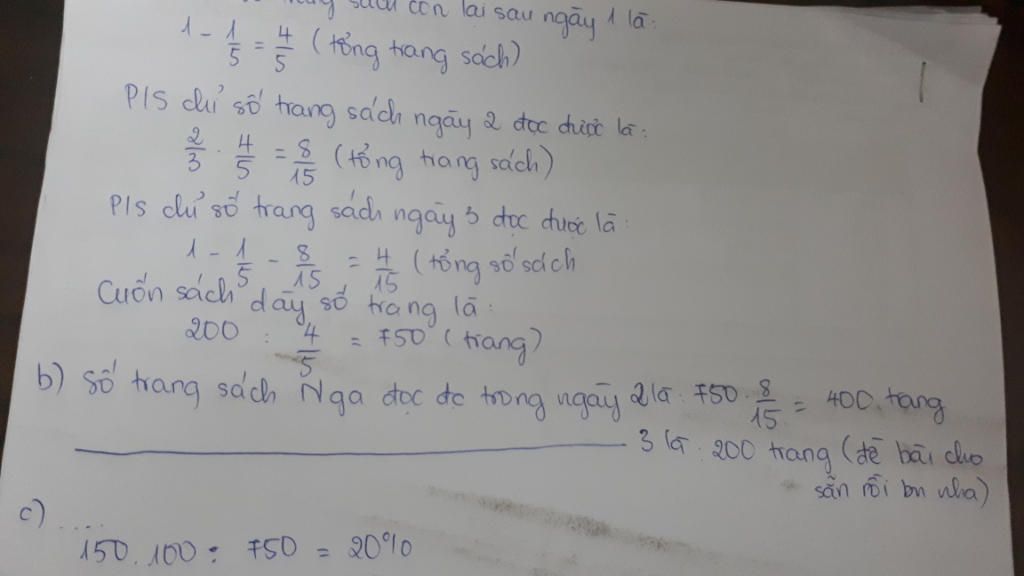 sách còn lại sau ngày 1 là:
1 - 1/5 = 4/5 (tổng trang sách)
P/S chỉ số trang sách ngày 2 đọc được là:
2/3 . 4/5 = 8/15 (tổng trang sách)
P/S chỉ số trang sách ngày 3 đọc được là:
1 - 1/5 - 8/15 = 4/15 (tổng số sách
Cuốn sách dày số trang là:
200 : 4/5 = 750 (trang)
b) Số trang sách Nga đọc đc trong ngày 2 là: 750 . 8/15 = 400 tang
3 là: 200 trang (đề bài cho
sẵn rồi bn nha)
c) ....
150.100 : 750 = 20%